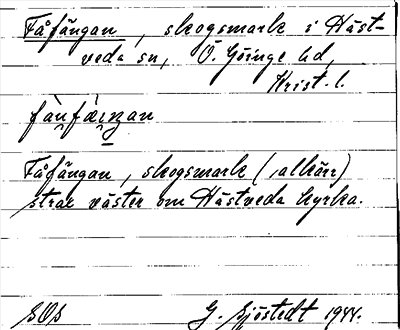 Fåfängan, skogsmark i Häst-
veda sn, Ö. Göinge hd,
Krist. l.
Fåfängan, skogsmark (, alkärr)
strax väster om Hästveda kyrka.
SOS G. Sjöstedt 1944.